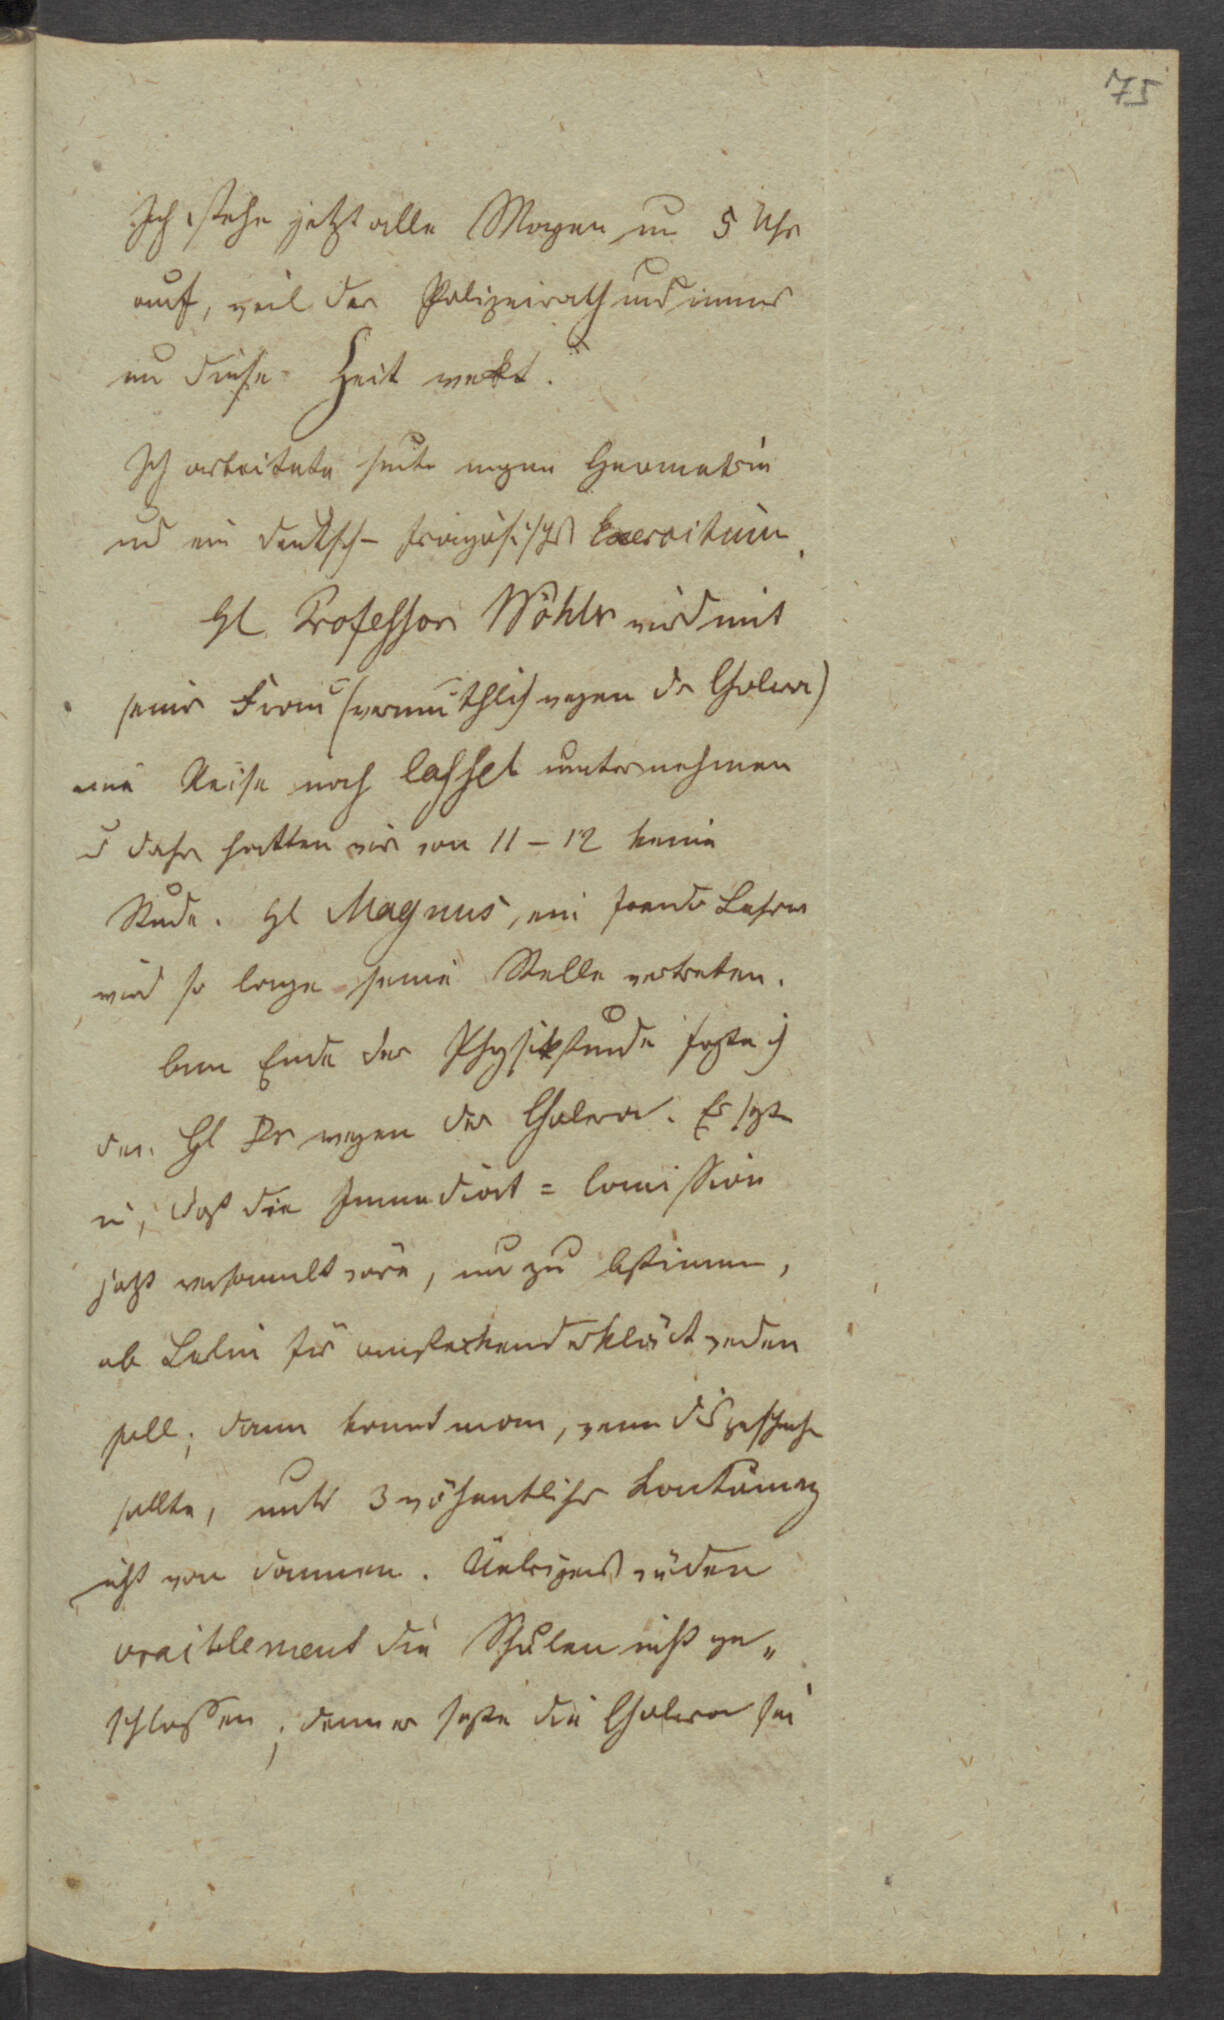 75
Ich stehe jetzt alle Morgen um 5 Uhr
auf, weil der Polizeirath uns immer
um diese Zeit wekt.
Ich arbeitete heute morgen Geometrie
und ein deutsch-französisches Exercitium.
Hl Professor Wöhler wird mit
seiner Frau (vermuthlich wegen der Cholera)
eine Reise nach Cassel unternehmen
u daher hatten wir von 11-12 keine
Stunde. Hl Magnus, ein fremder Lehrer
wird so lange seine Stelle vertreten.
Am Ende der Physikstunde fragte ich
den Hl Dr wegen der Cholera. Er sagte
mir, daß die Immediat=Comission
jetzt versammelt wäre, um zu bestimmen,
ob Berlin für ansteckend erklärt werden
soll; dann könnte man, wenn dies geschehen
sollte, unter 3 wöchentlicher Kontumaz
nicht von dannen. Uebrigens würden
vraiblement die Schulen nicht ge„
schlossen; denn er sagte die Cholera sei